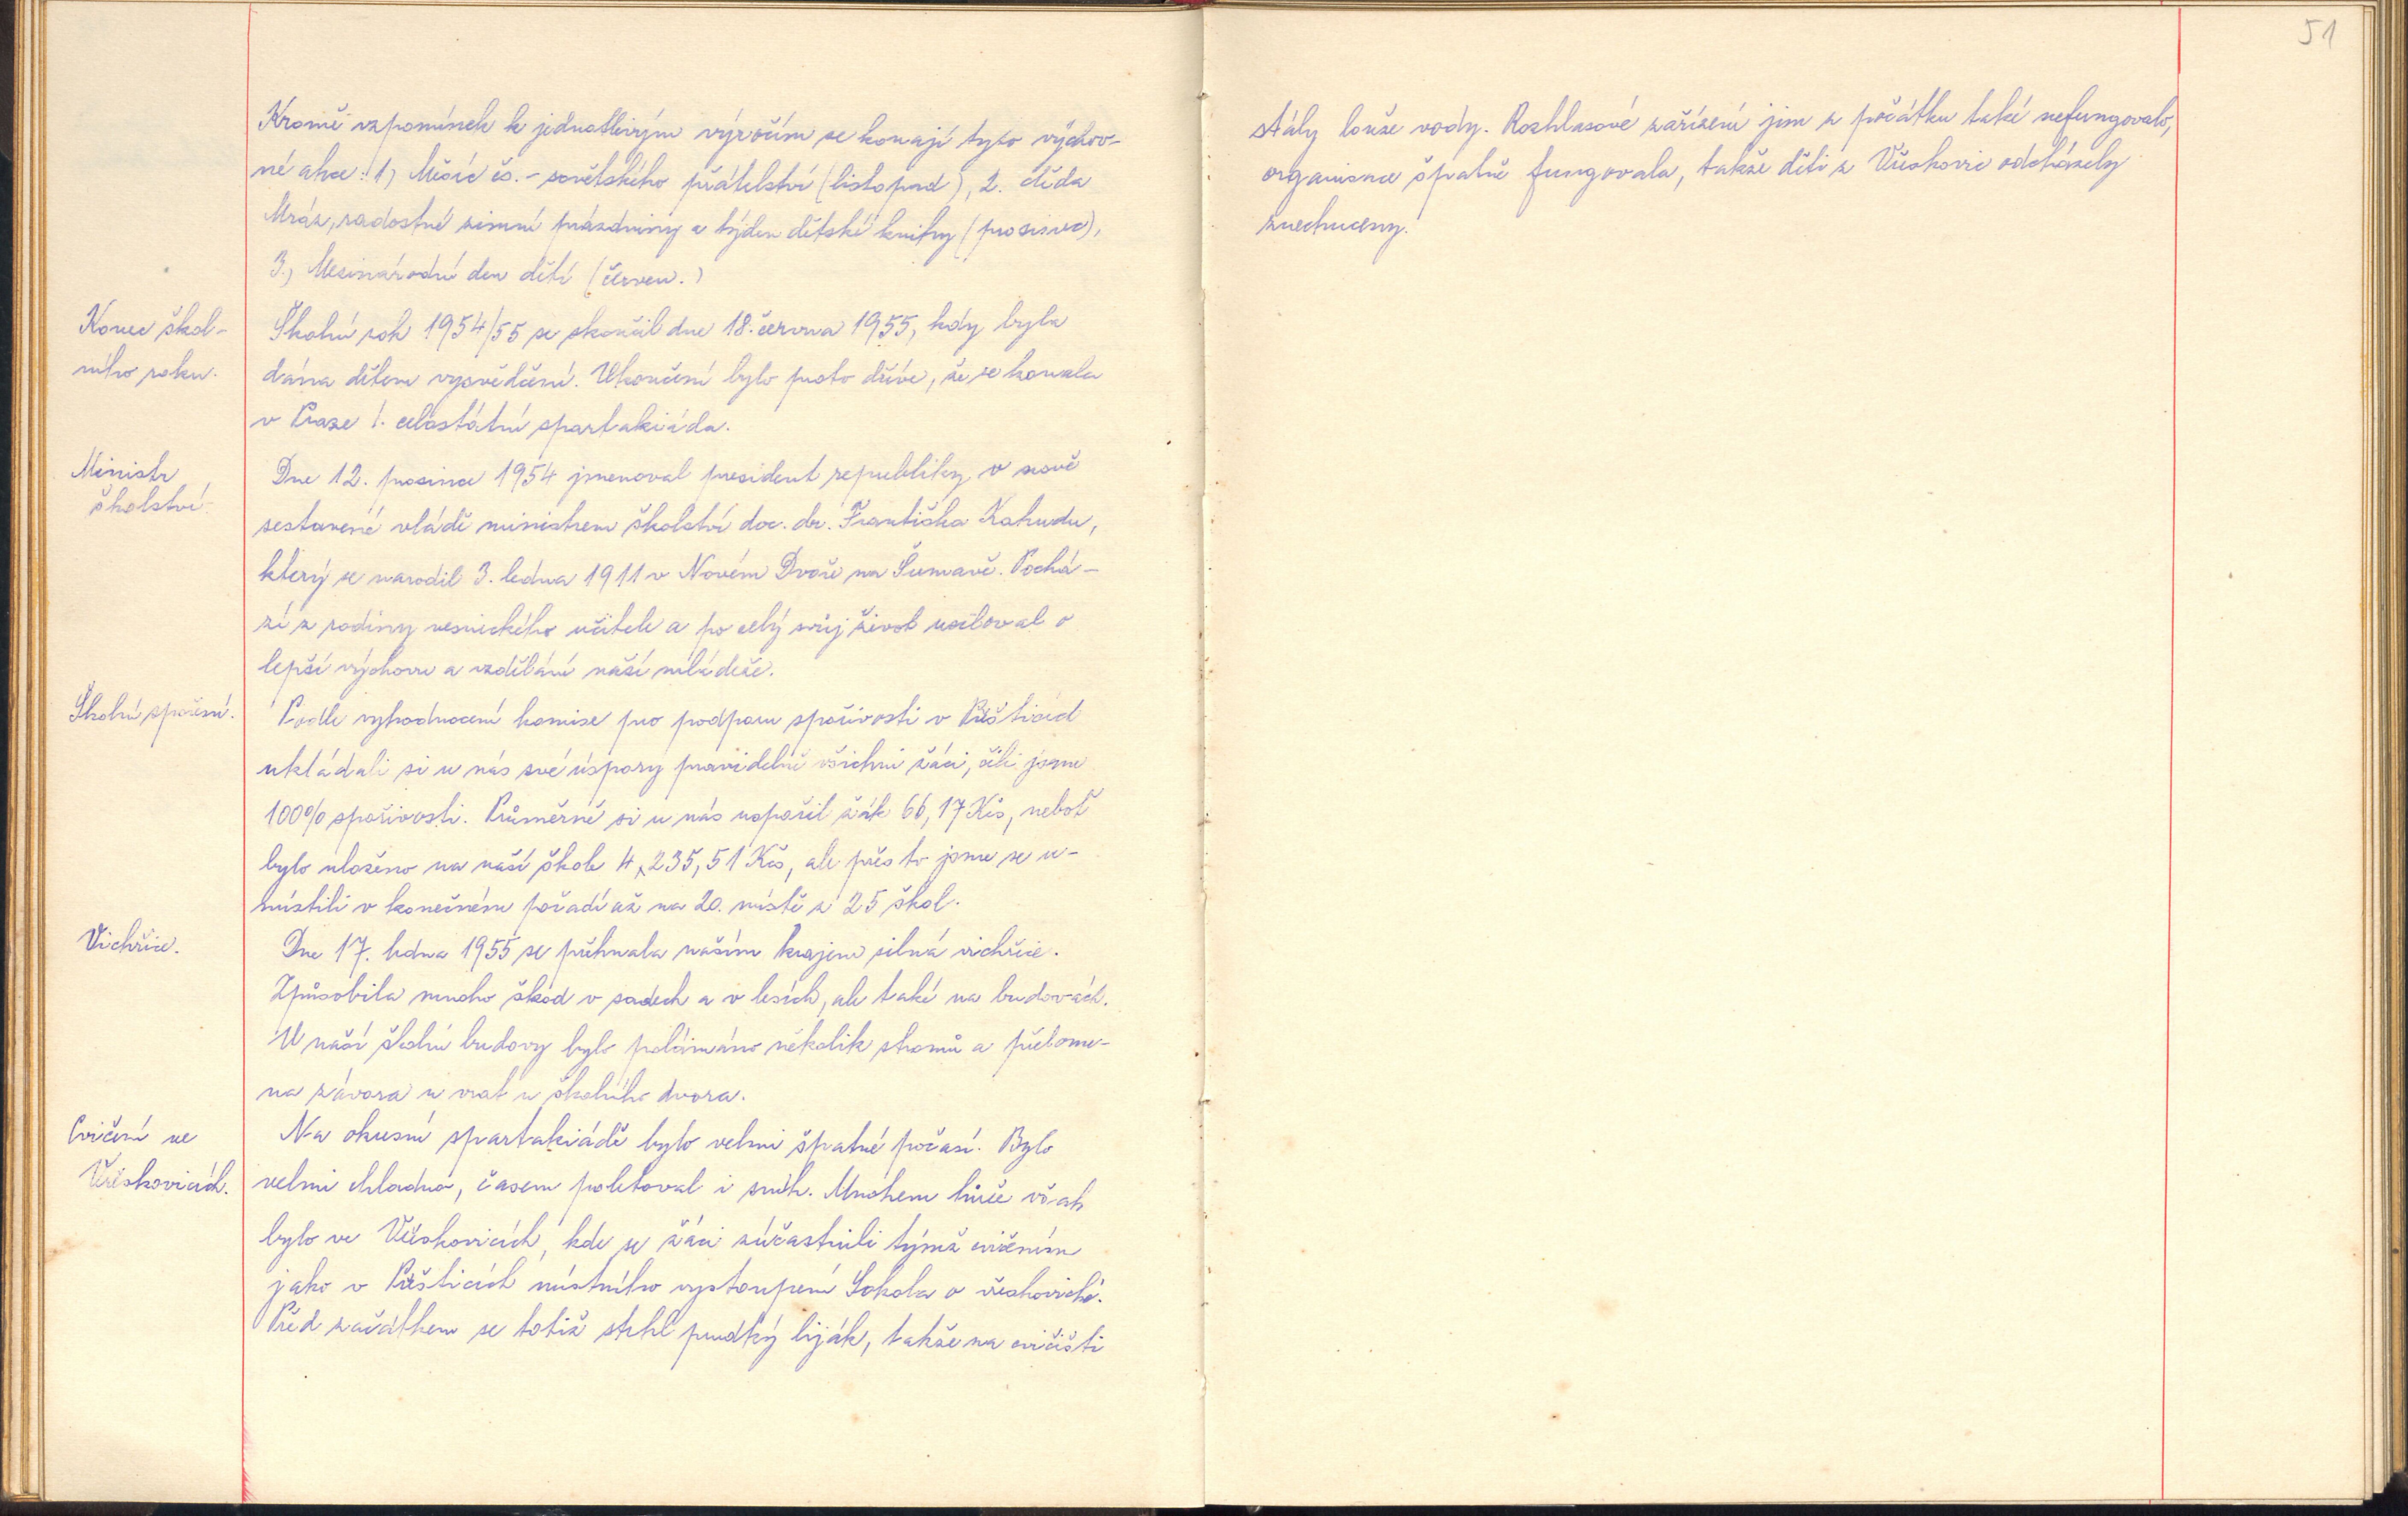 Kromě vzpomínek k jednotlivým výročím se konají tyto výchov-
né akce: 1) Měsíc čs. - sovětského přátelství (listopad), 2. děda
Mráz, radostné zimní prázdniny a týden dětské knihy (prosinec),
3.) Mezinárodní den dětí (červen.)
Konec škol-
ního roku.
Školní rok 1954/55 se skončil dne 18. června 1955, kdy byla
dána dětem vysvědčení. Ukončení bylo proto dříve, že se konala
v Praze I. celostátní spartakiáda.
Ministr
školství.
Dne 12. prosince 1954 jmenoval president republiky v nově
sestavené vládě ministrem školství doc. dr. Františka Kahudu,
který se narodil 3. ledna 1911 v Novém Dvoře na Šumavě. Pochá-
zí z rodiny vesnického učitele a po celý svůj život usiloval o
lepší výchovu a vzdělání naší mládeže.
Školní spoření.
Podle vyhodnocení komise pro podporu spořivosti v Přešticích
ukládali si u nás své úspory pravidelně všichni žáci, čili jsme
100% spořivosti. Průměrně si u nás uspořil žák 66,17 Kčs, neboť
bylo uloženo na naší škole 4,235,51 Kčs, ale přes to jsme se u-
místili v konečném pořadí až na 20. místě z 25 škol.
Vichřice.
Dne 17. ledna 1955 se přehnala naším krajem silná vichřice.
Způsobila mnoho škod v sadech a v lesích, ale také na budovách.
U naší školní budovy bylo polámáno několik stromů a přelome-
na závora u vrat u školního dvora.
Cvičení ve
Vřeskovicích.
Na okresní spartakiádě bylo velmi špatné počasí. Bylo
velmi chladno, časem poletoval i sníh. Mnohem hůře však
bylo ve Vřeskovicích, kde se žáci zúčastnili týmž cvičením
jako v Přešticích místního vystoupení Sokola v
Před začátkem se totiž strhl prudký liják, takže na cvičišti
51
stály louže vody. Rozhlasové zařízení jim z počátku také nefungovalo,
organisace špatně fungovala, takže děti z Vřeskovic odcházely
znechuceny.